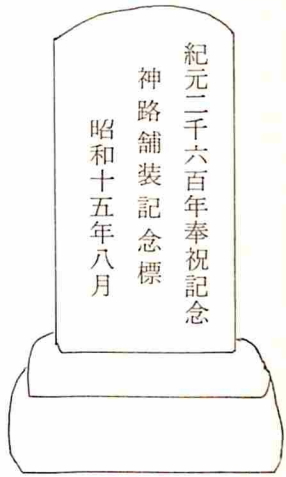 紀元二千六百年奉祝記念
神路舗装記念標
昭和十五年八月